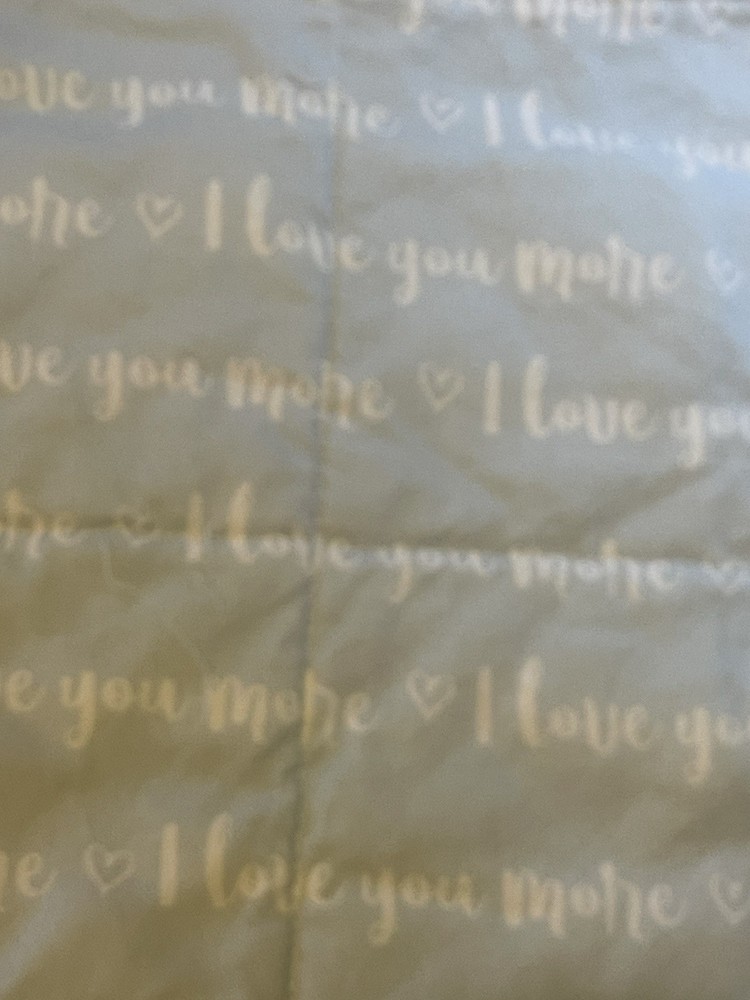 you more ♡
ove you more ♡ I love you
ore ♡ I love you more ♡
ve you more ♡ I love you
ore ♡ I love you more ♡
e you more ♡ I love yo
re ♡ I love you more ♡